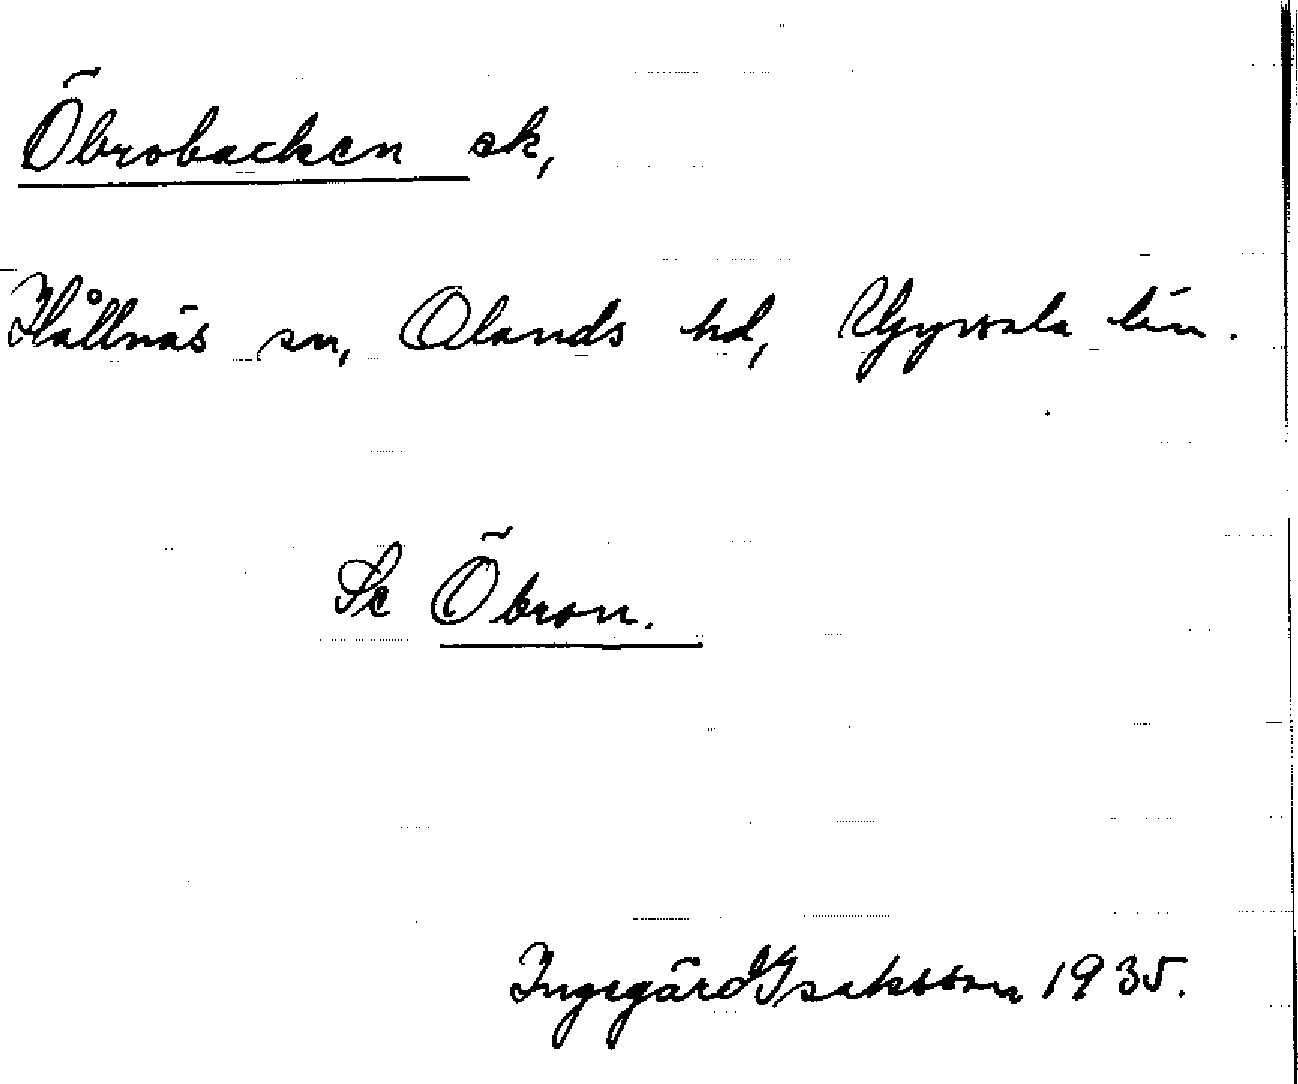 Öbrobacken ek,
Hållnäs sn, Olands hd, Uppsala län.
Se Öbron.
Ingegärd Isaksson 1935.